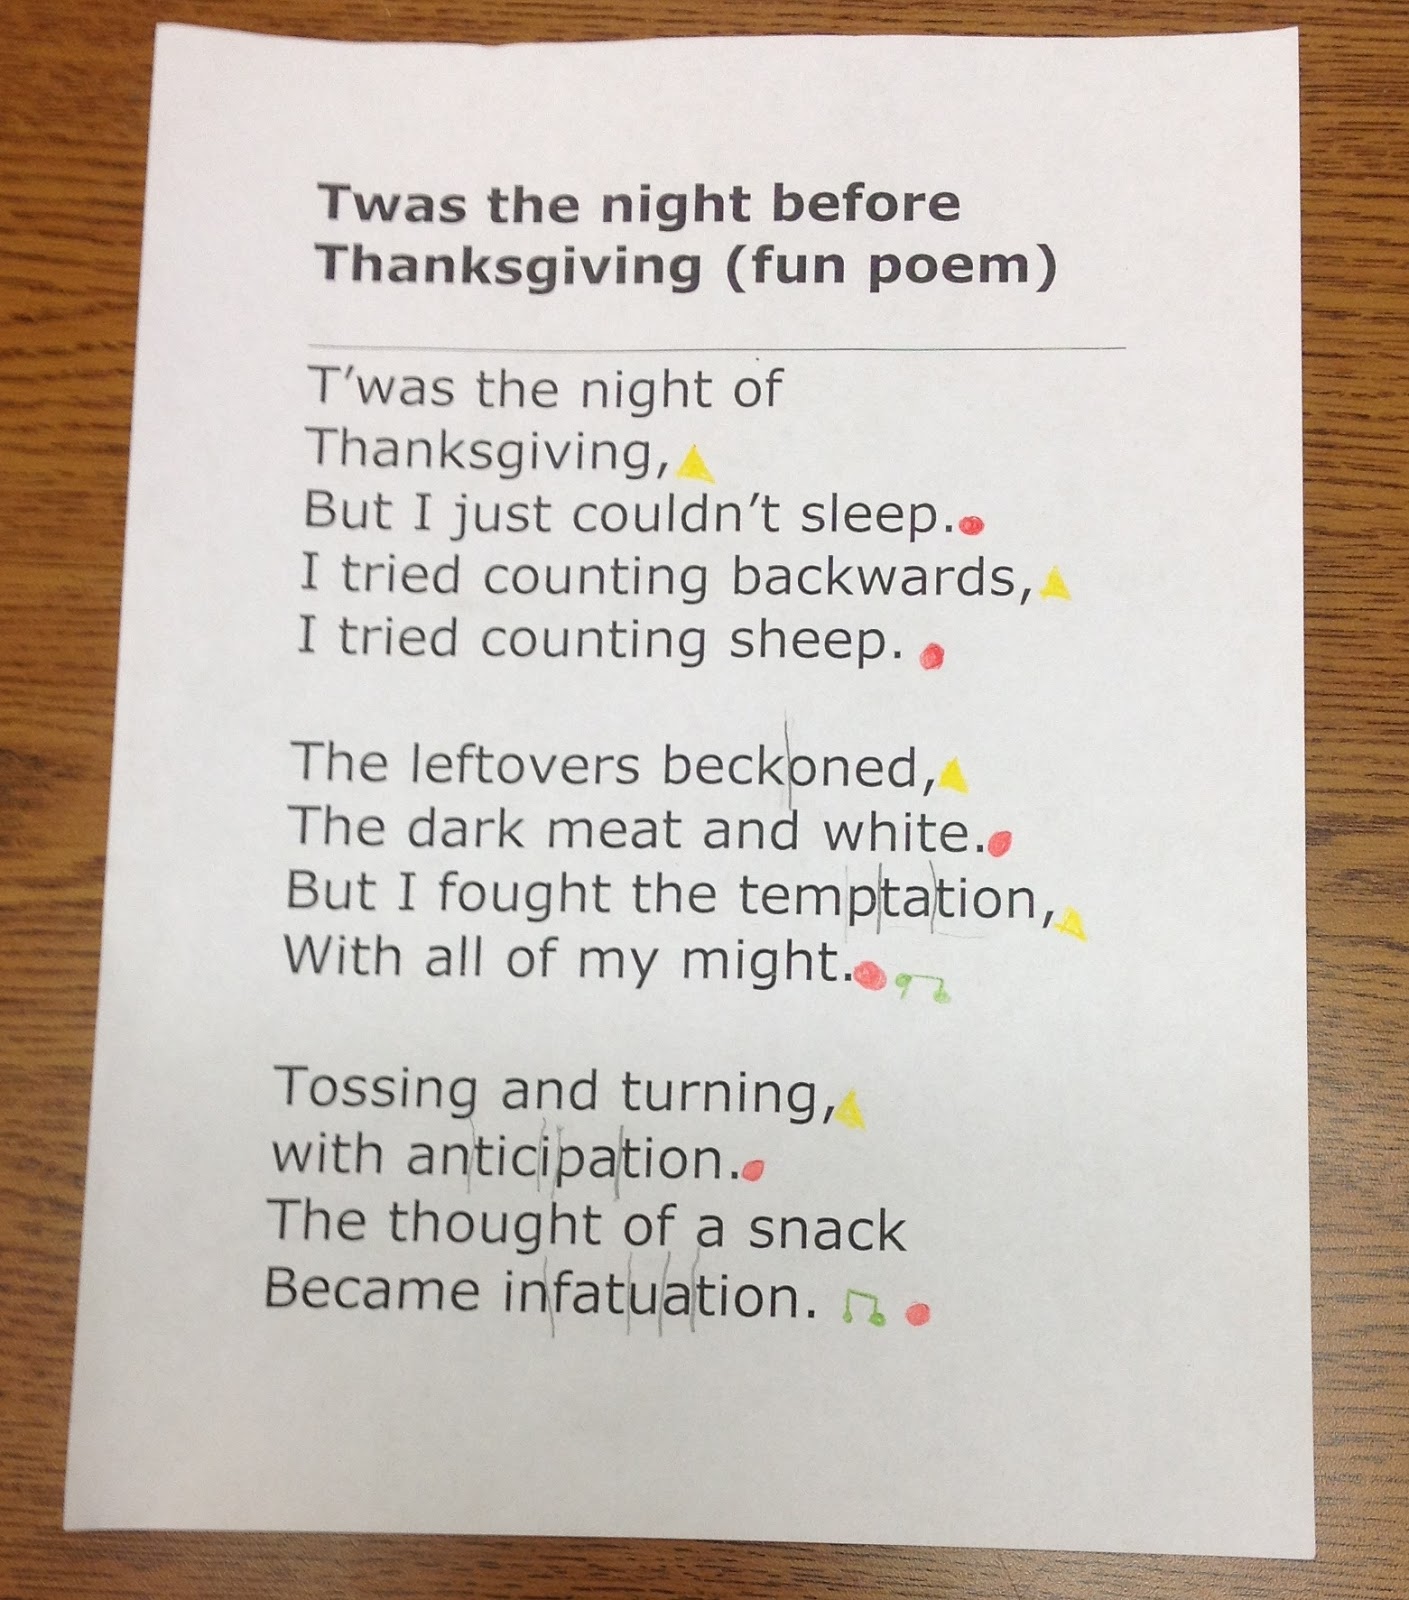 Twas the night before
Thanksgiving (fun poem)
T'was the night of
Thanksgiving,
But I just couldn't sleep.
I tried counting backwards,
I tried counting sheep.
The leftovers beckoned,
The dark meat and white.
But I fought the temptation,
With all of my might.
Tossing and turning,
with anticipation.
The thought of a snack
Became infatuation.